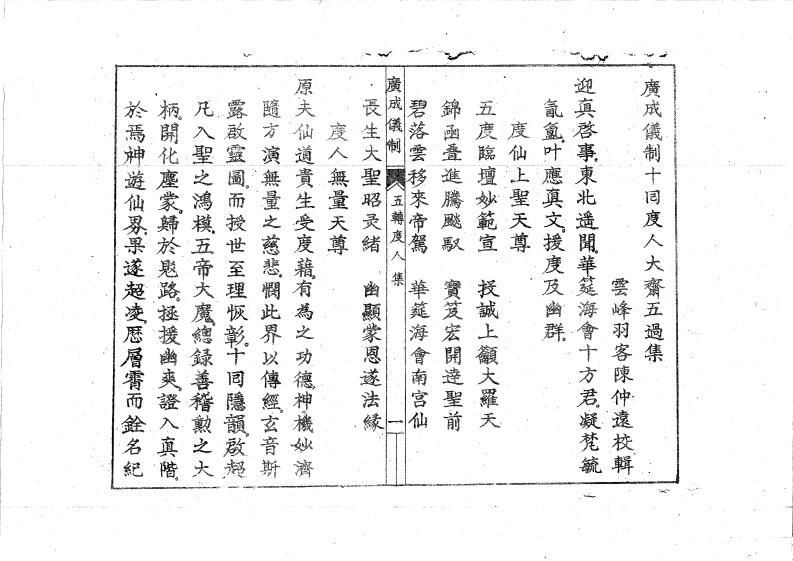 廣成儀制十囘度人大齋五過集
雲峰羽客陳仲遠校輯
迎真啓事東北遥聞華筵海會十方君凝梵毓
氤氳叶應真文援度及幽群
度仙上聖天尊
五度臨壇妙範宣　投誠上籲大羅天
錦函叠進騰飈馭　寶笈宏開達聖前
碧落雲移來帝駕　華筵海會南宫仙
廣成儀制　五轉度人集　一
長生大聖昭灵緒　幽顯蒙恩遂法緣
度人無量天尊
原夫仙道貴生受度藉有為之功德神機妙濟
隨方演無量之慈悲憫此界以傳經玄音斯
露啟靈圖而授世至理恢彰十囘隱韻啟超
凡入聖之鴻模五帝大魔總録善稽勲之大
柄開化塵蒙歸於熙路拯援幽爽證入真階
於焉神遊仙界果遂超凌歷層霄而銓名紀